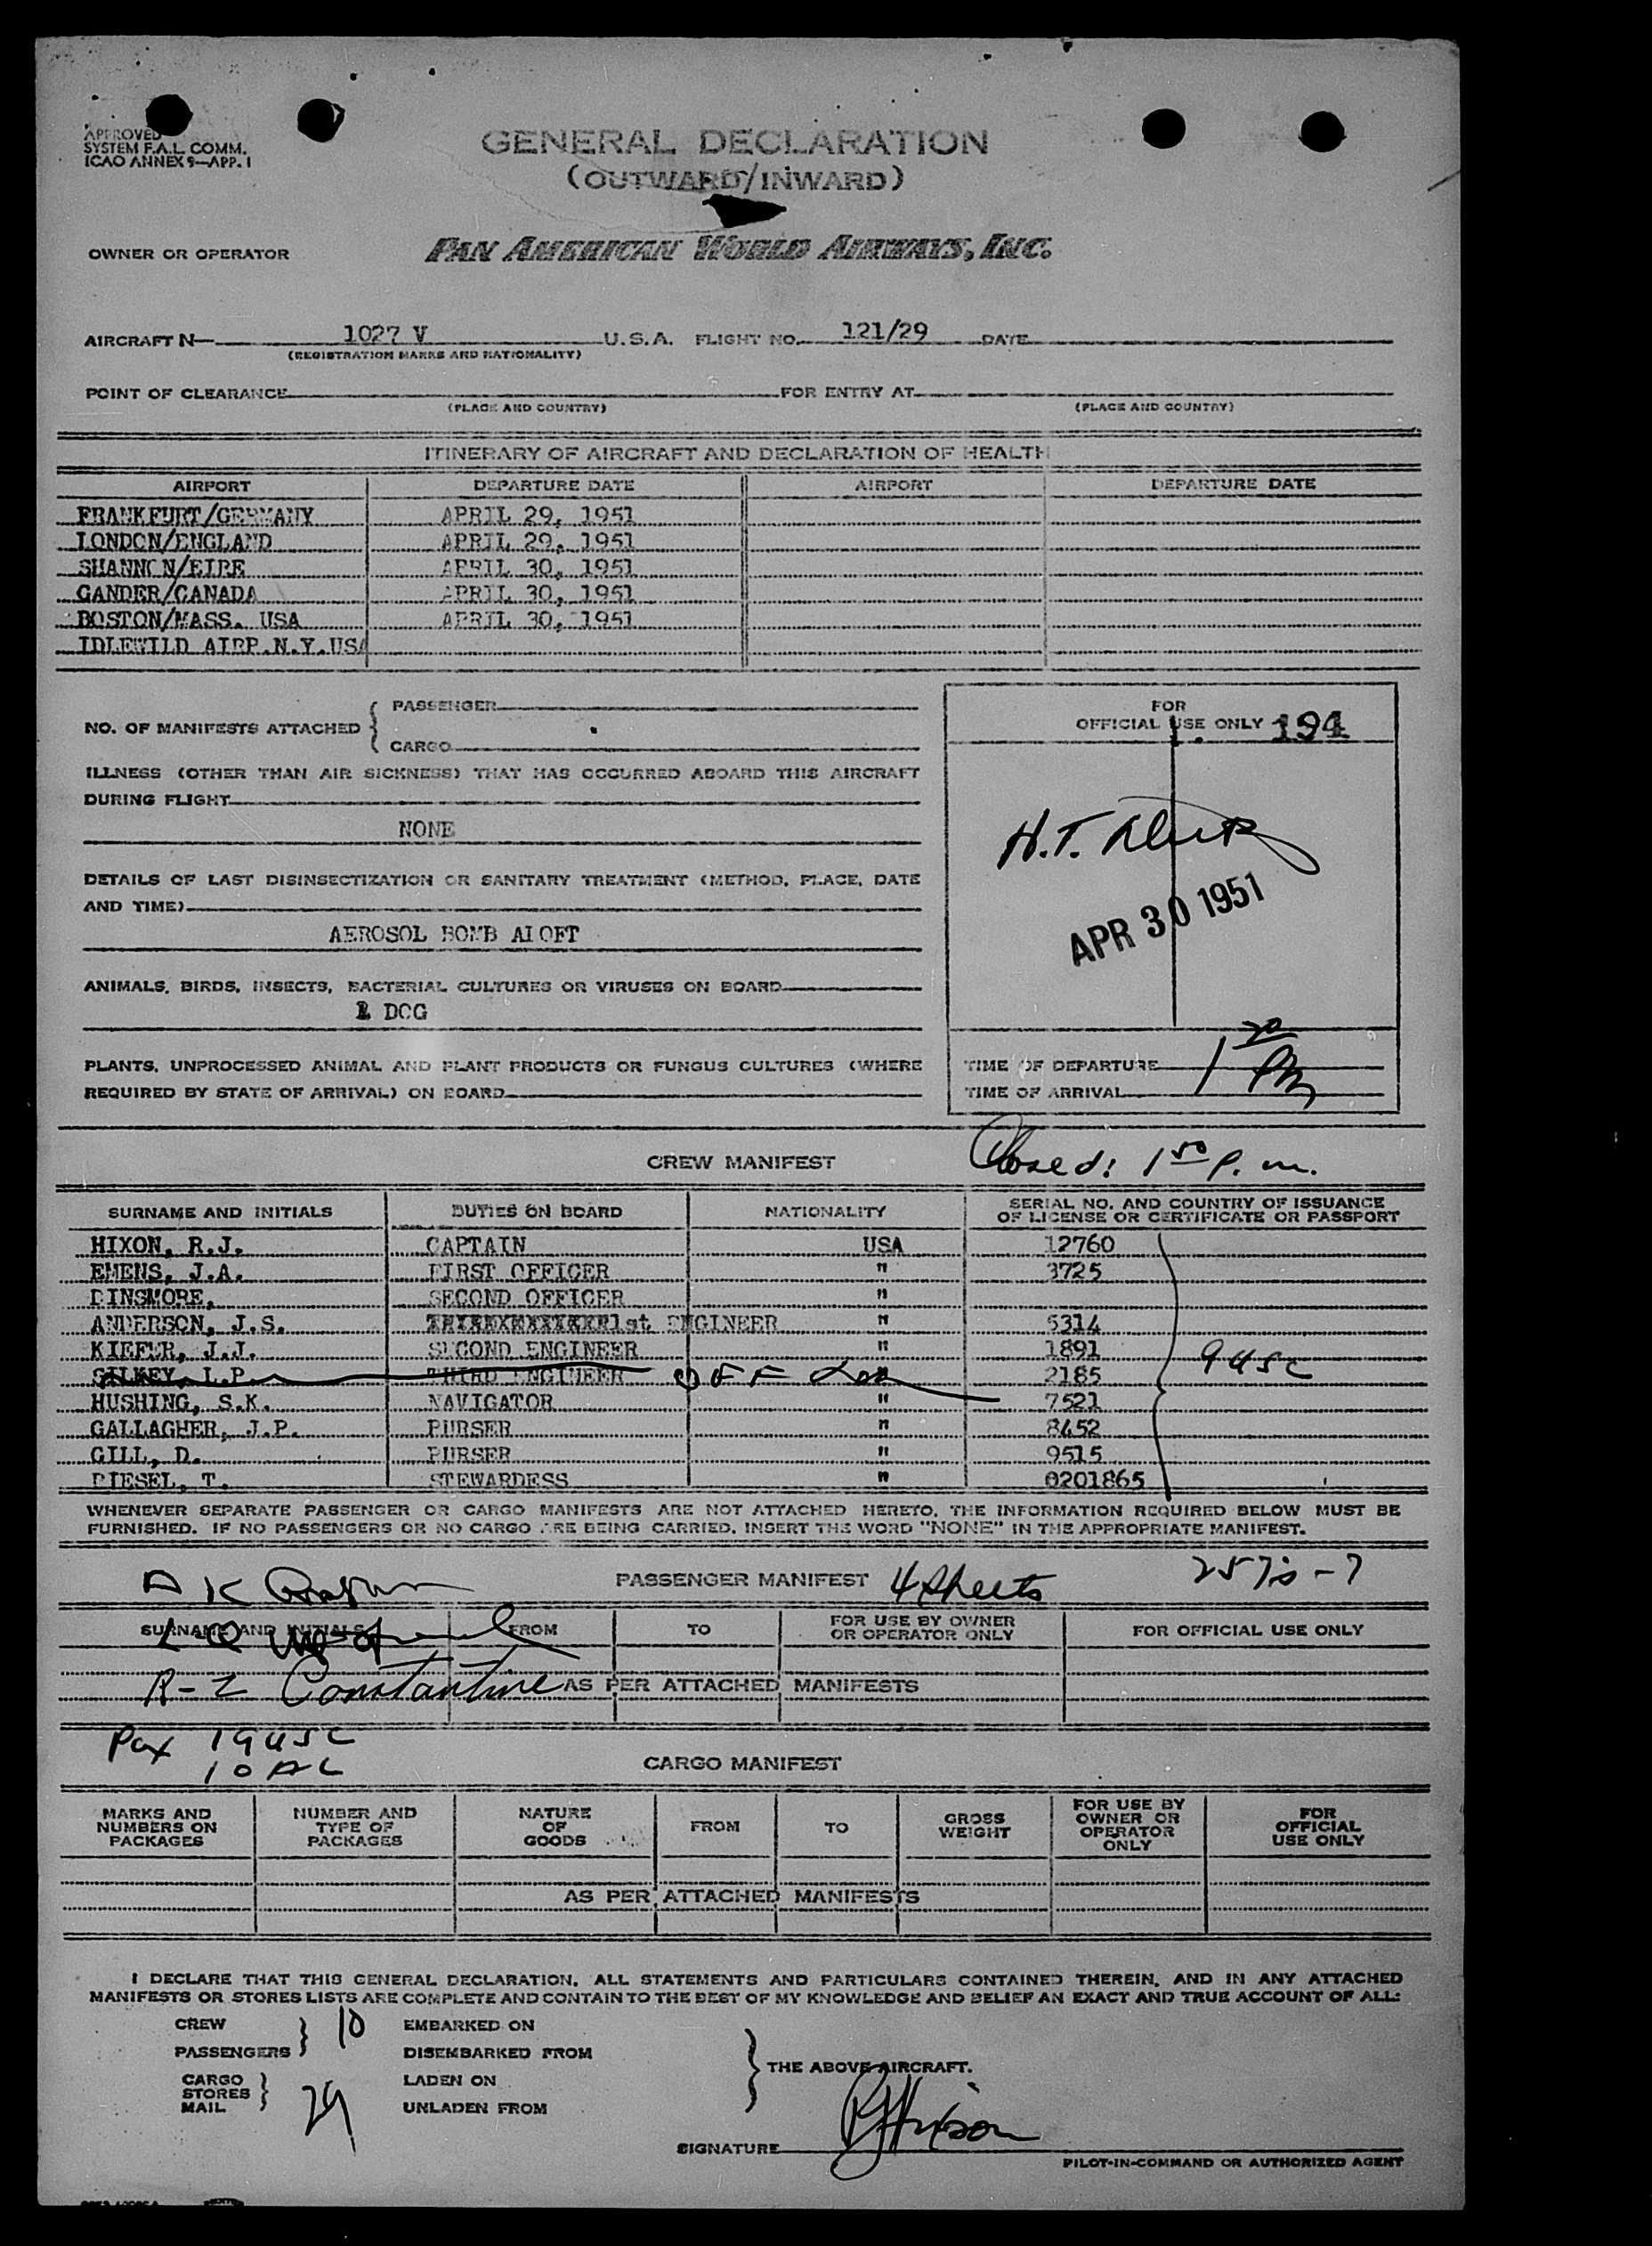 APPROVED
SYSTEM F.A.L. COMM.
ICAO ANNEX 9—APP. I
GENERAL DECLARATION
(OUTWARD/INWARD)
OWNER OR OPERATOR PAN AMERICAN WORLD AIRWAYS, INC.
AIRCRAFT N— 1027 V U.S.A. FLIGHT NO. 121/29 DATE
(REGISTRATION MARKS AND NATIONALITY)
POINT OF CLEARANCE FOR ENTRY AT
(PLACE AND COUNTRY) (PLACE AND COUNTRY)
ITINERARY OF AIRCRAFT AND DECLARATION OF HEALTH
AIRPORT DEPARTURE DATE AIRPORT DEPARTURE DATE
FRANKFURT/GERMANY APRIL 29, 1951
LONDON/ENGLAND APRIL 29, 1951
SHANNON/EIRE APRIL 30, 1951
GANDER/CANADA APRIL 30, 1951
BOSTON/MASS. USA APRIL 30, 1951
IDLEWILD AIRP.N.Y.USA
NO. OF MANIFESTS ATTACHED { PASSENGER
CARGO
ILLNESS (OTHER THAN AIR SICKNESS) THAT HAS OCCURRED ABOARD THIS AIRCRAFT
DURING FLIGHT
NONE
DETAILS OF LAST DISINSECTIZATION OR SANITARY TREATMENT (METHOD, PLACE, DATE
AND TIME)
AEROSOL BOMB ALOFT
ANIMALS, BIRDS, INSECTS, BACTERIAL CULTURES OR VIRUSES ON BOARD
1 DOG
PLANTS, UNPROCESSED ANIMAL AND PLANT PRODUCTS OR FUNGUS CULTURES (WHERE
REQUIRED BY STATE OF ARRIVAL) ON BOARD
FOR
OFFICIAL USE ONLY 194
H.T.
APR 30 1951
TIME OF DEPARTURE
TIME OF ARRIVAL
1 20 PM
Closed: 1 50 P. m.
CREW MANIFEST
SURNAME AND INITIALS DUTIES ON BOARD NATIONALITY SERIAL NO. AND COUNTRY OF ISSUANCE
OF LICENSE OR CERTIFICATE OR PASSPORT
HIXON, R.J. CAPTAIN USA 12760
EMENS, J.A. FIRST OFFICER " 3725
DINSMORE, SECOND OFFICER "
ANDERSON, J.S. 1st ENGINEER " 5314
KIEFER, J.J. SECOND ENGINEER " 1891
SILKEY, L.P. THIRD ENGINEER OFF Lon " 2185
HUSHING, S.K. NAVIGATOR " 7521
GALLAGHER, J.P. PURSER " 8452
GILL, D. PURSER " 9515
DIESEL, T. STEWARDESS " 0201865
9 USC
WHENEVER SEPARATE PASSENGER OR CARGO MANIFESTS ARE NOT ATTACHED HERETO, THE INFORMATION REQUIRED BELOW MUST BE
FURNISHED. IF NO PASSENGERS OR NO CARGO ARE BEING CARRIED, INSERT THE WORD "NONE" IN THE APPROPRIATE MANIFEST.
PASSENGER MANIFEST 4 Sheets
SURNAME AND INITIALS FROM TO FOR USE BY OWNER
OR OPERATOR ONLY FOR OFFICIAL USE ONLY
A-K
L-Q
R-Z Constantine AS PER ATTACHED MANIFESTS
Pax 19 USC
10 AL
CARGO MANIFEST
MARKS AND
NUMBERS ON
PACKAGES
NUMBER AND
TYPE OF
PACKAGES
NATURE
OF
GOODS
FROM
TO
GROSS
WEIGHT
FOR USE BY
OWNER OR
OPERATOR
ONLY
FOR
OFFICIAL
USE ONLY
AS PER ATTACHED MANIFESTS
I DECLARE THAT THIS GENERAL DECLARATION, ALL STATEMENTS AND PARTICULARS CONTAINED THEREIN, AND IN ANY ATTACHED
MANIFESTS OR STORES LISTS ARE COMPLETE AND CONTAIN TO THE BEST OF MY KNOWLEDGE AND BELIEF AN EXACT AND TRUE ACCOUNT OF ALL:
CREW
PASSENGERS } 10
EMBARKED ON
DISEMBARKED FROM
CARGO
STORES
MAIL } 29
LADEN ON
UNLADEN FROM
} THE ABOVE AIRCRAFT.
SIGNATURE RJHixson
PILOT-IN-COMMAND OR AUTHORIZED AGENT